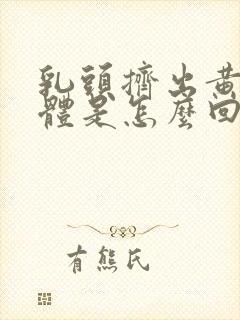 乳頭擠出黃
體是怎麼回
有熊氏